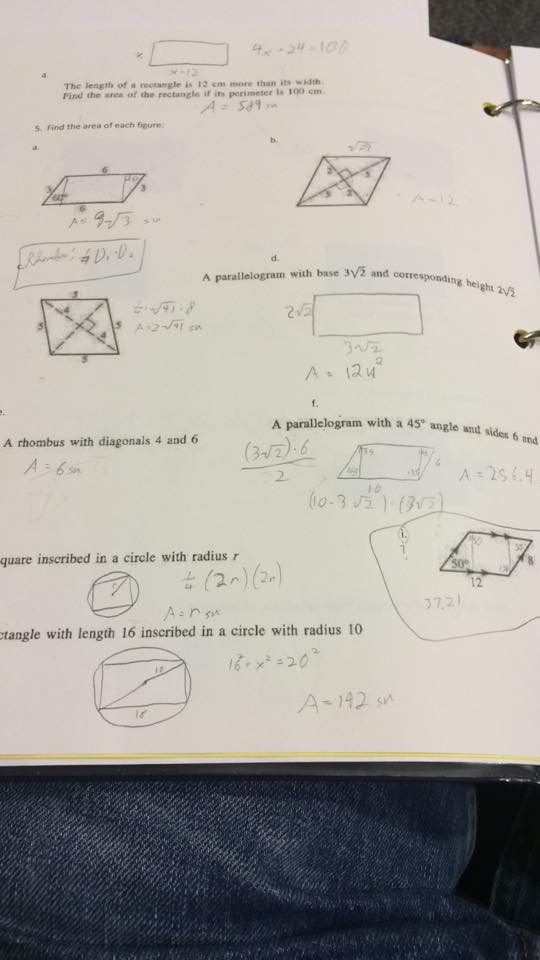 x
4x + 24 = 100
x+12
4.
The length of a rectangle is 12 cm more than its width.
Find the area of the rectangle if its perimeter is 100 cm.
A = 589 sn
5. Find the area of each figure:
a.
b.
6
3
3
60°
6
A = 9√3 sn
√29
2
5
5
2
A=12
Rhombus: ½ D₁·D₂
5
5
4
4
5
5
½·√41·8
A=2√41 sn
d.
A parallelogram with base 3√2 and corresponding height 2√2
2√2
3√2
A = 12u²
e.
A rhombus with diagonals 4 and 6
A = 6 sn
f.
A parallelogram with a 45° angle and sides 6 and
(3√2)·6
2
45
45
45
135
6
10
A = 256.4
(10-3√2)·(3√2)
quare inscribed in a circle with radius r
r
¼ (2r)(2r)
A=r sn
i.
?
50°
8
12
37.21
ctangle with length 16 inscribed in a circle with radius 10
10
16
16² + x² = 20²
A = 192 sn